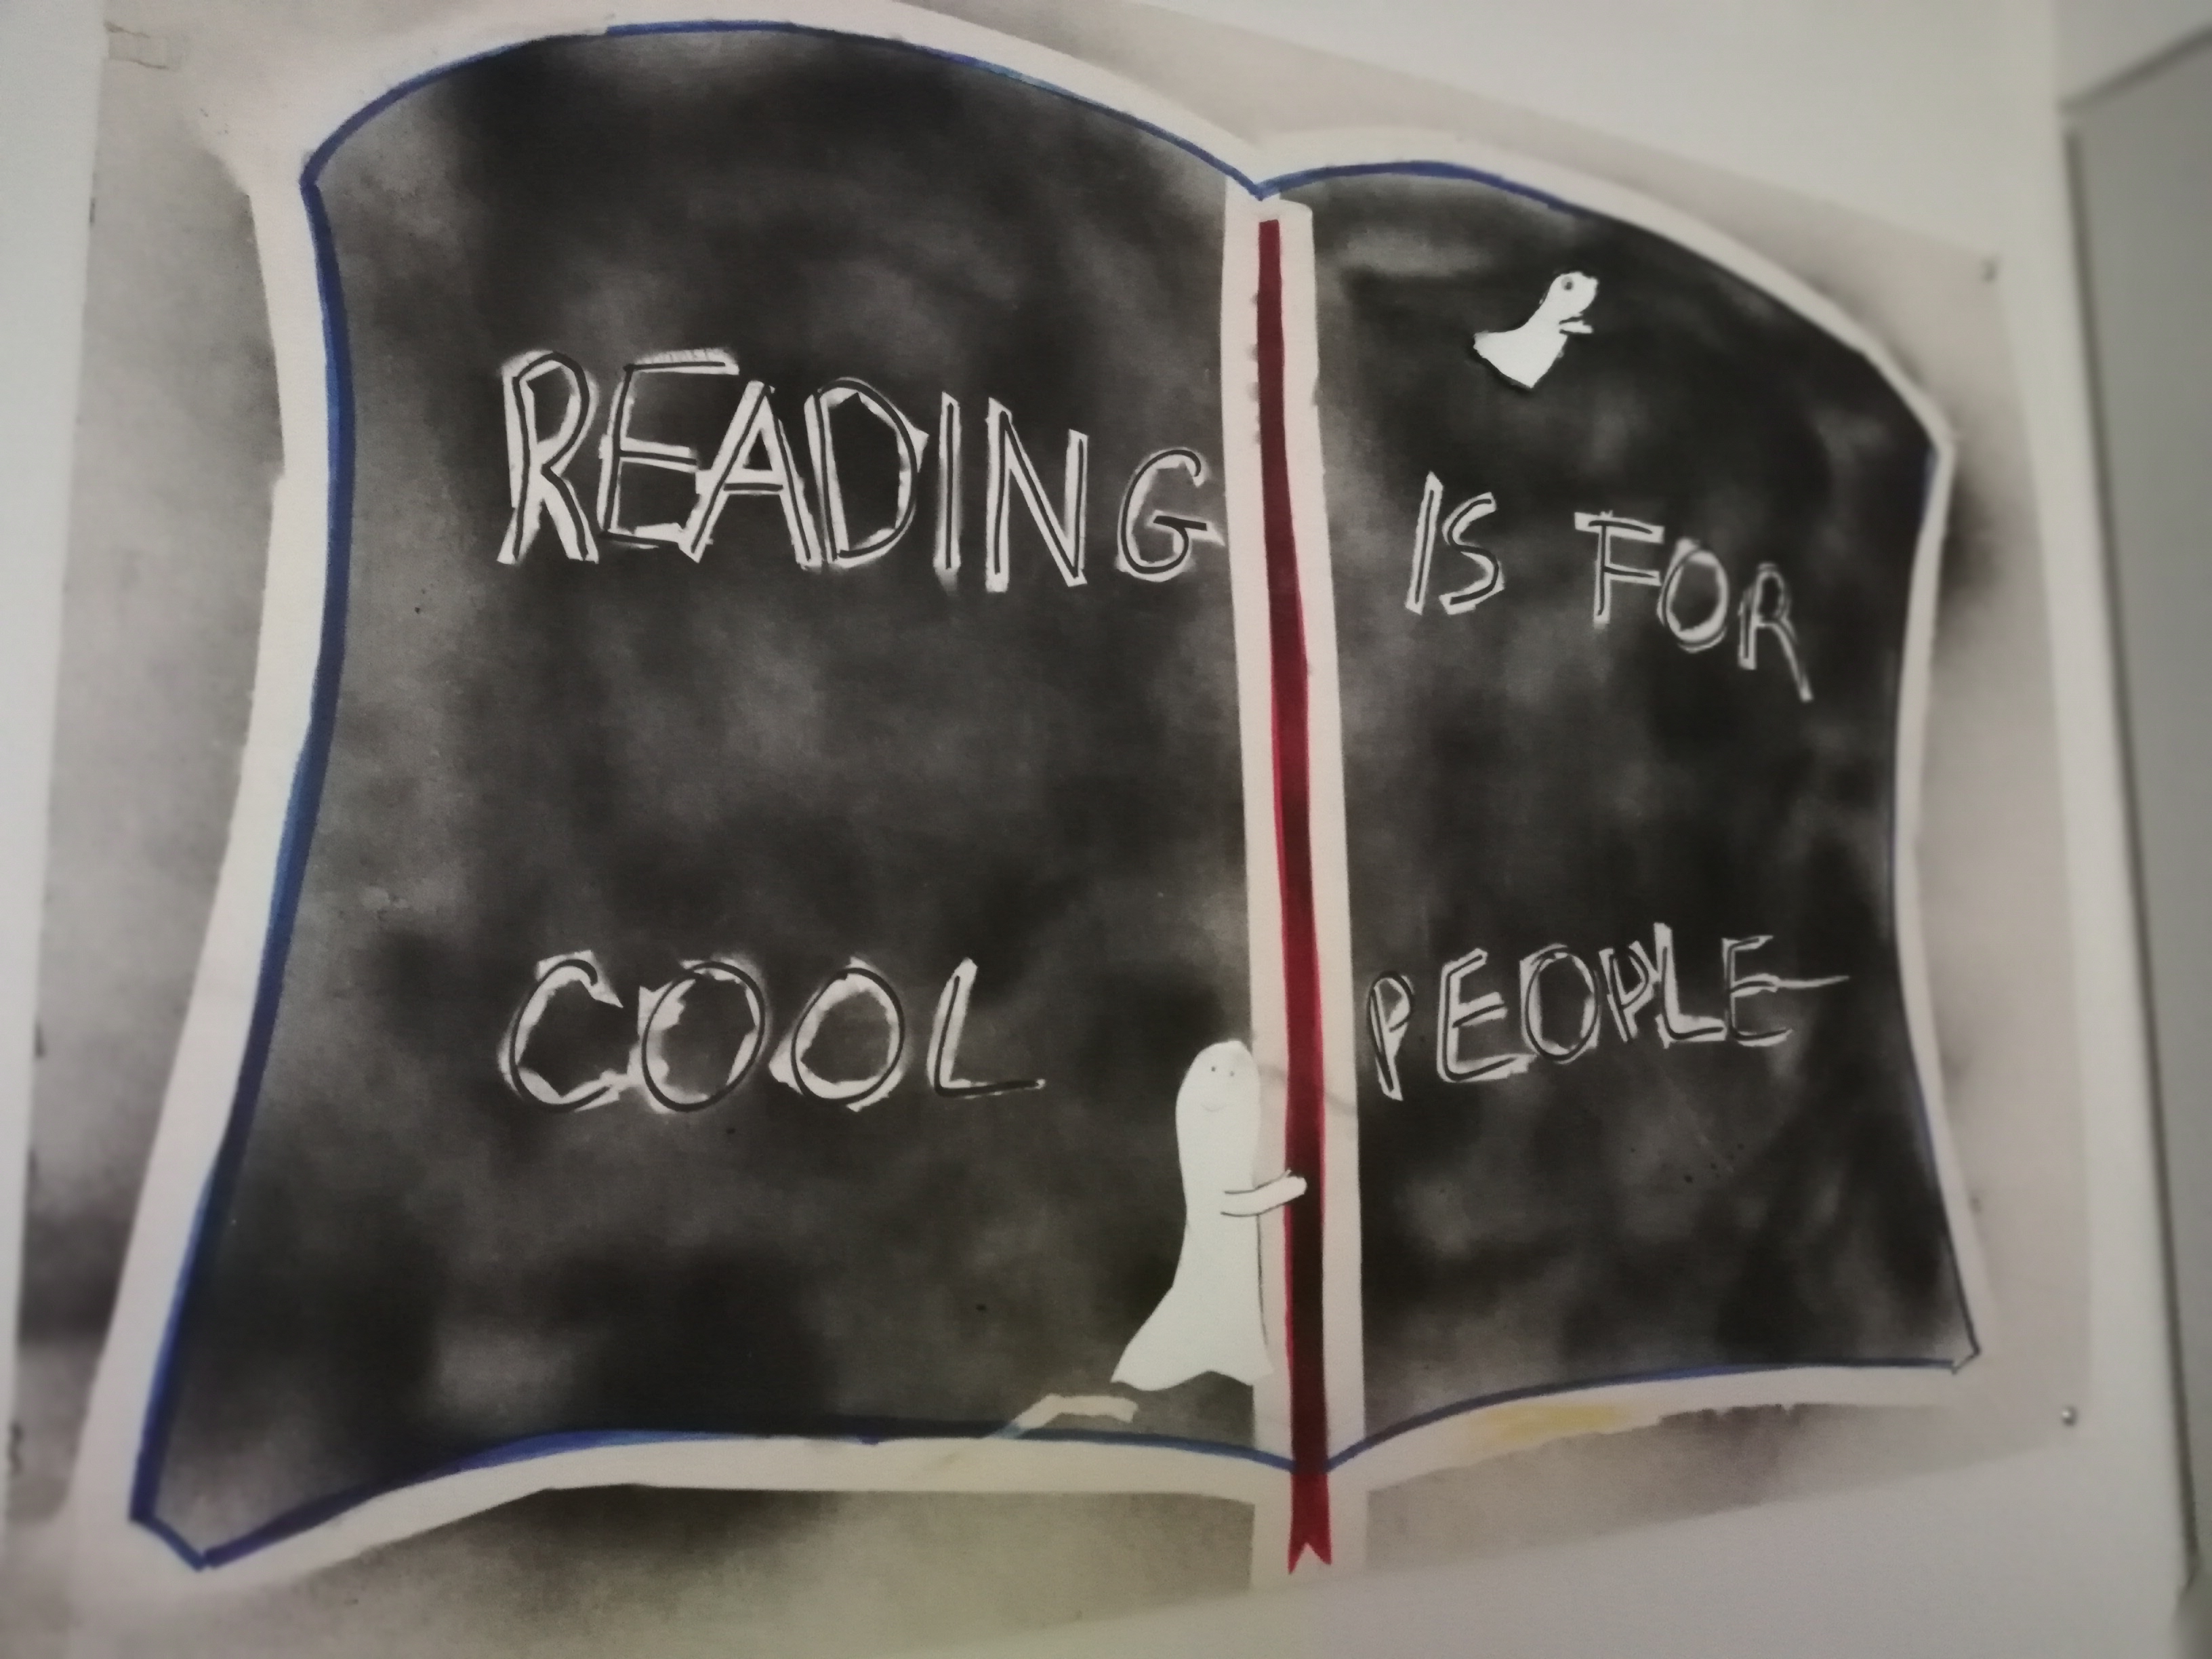 READING IS FOR
COOL PEOPLE